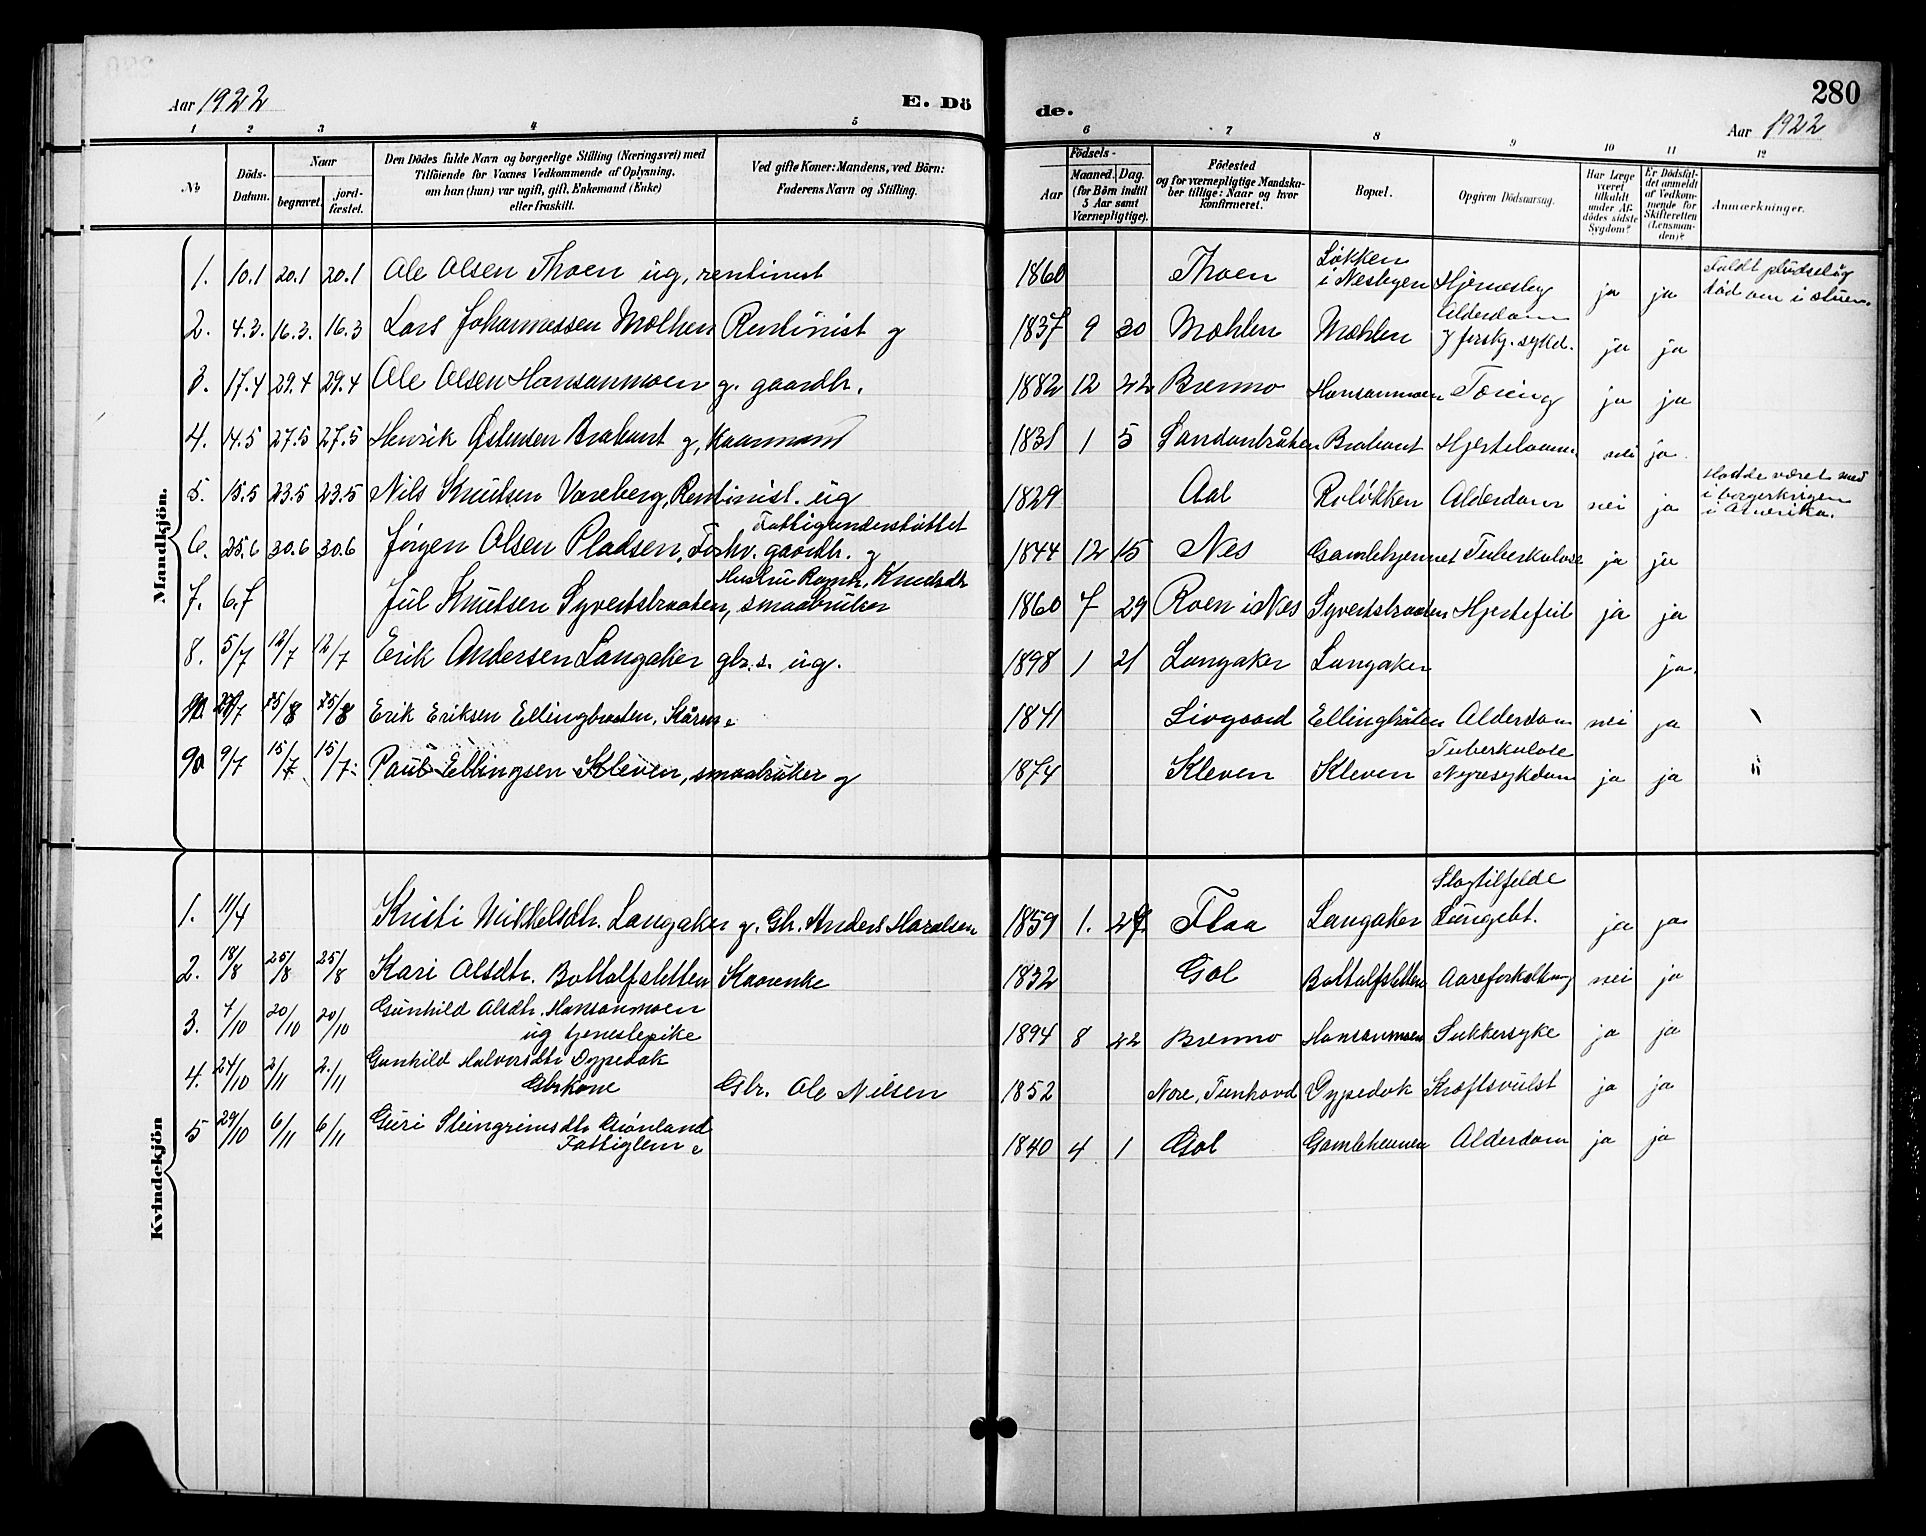 280
Aar 1922
E. Dö
de.
Aar 1922
1 2 3 4 5 6 7 8 9 10 11 12
No
Döds-Datum.
Naar
begravet.
jord-fæstet.
Den Dödes fulde Navn og borgerlige Stilling (Næringsvei) med
Tilföiende for Voxnes Vedkommende af Oplysning,
om han (hun) var ugift, gift, Enkemand (Enke)
eller fraskilt.
Ved gifte Koner: Mandens, ved Börn:
Faderens Navn og Stilling.
Födsels-
Aar
Maaned. Dag.
(for Börn indtil
5 Aar samt
Værnepligtige).
Födested
og for værnepligtige Mandska-
ber tillige: Naar og hvor
konfirmeret.
Bopæl.
Opgiven Dödsaarsag.
Har Læge
været
tilkaldt
under Af-
dödes sidste
Sygdom?
Er Dödsfal-
det anmeldt
af Vedkom-
mende for
Skifteretten
(Lensman-
den)?
Anmærkninger.
Mandkjön.
1. 10.1 20.1 20.1 Ole Olsen Thoen ug, rentinist 1860 Thoen Løkken i Nesbyen Hjerneslag ja ja Faldt pludselig død om i stuen.
2. 4.3. 16.3. 16.3 Lars Johannessen Mæhlen Rentinist g 1837 9 30 Mæhlen Mæhlen Alderdom g forskj. sykd. ja ja
3. 17.4 29.4 29.4 Ole Olsen Hansanmoen g. gaardbr. 1882 12 22 Bremmo Hansanmoen Tæring ja ja
4. 14.5 27.5 27.5 Henrik Østensen Brabant g, Kaarmand 1831 1 5 Sandanbråten Brabant Hjertelam nei ja.
5. 15.5 23.5 23.5 Nils Knutsen Vareberg, Rentinist. ug 1829 Aal Roløkken Alderdom nei ja Hadde været med i borgerkrigen i Amerika.
6. 25.6 30.6 30.6 Jørgen Olsen Pladsen, Forhv. gaardbr. g Fattigunderstøttet 1844 12 15 Nes Gamlehjemmet Tuberkulose ja ja
7. 6.7 Jul Knutsen Syverstbraaten, smaabruker Hustru Knudsdtr 1860 7 29 Roen i Nes Syverstbraaten Hjertefeil ja ja
8. 5/7 12/7 12/7 Erik Andersen Langaker gbr.s. ug. 1898 1 21 Langaker Langaker ja.
15/8 15/8 Erik Eriksen Ellingbraaten, Kårm. e 1841 Livgaard Ellingbråten Alderdom nei ja
9/7 15/7 15/7 Paul Ellingsen Kleven, smaabruker g 1874 Kleven Kleven Tuberkulose Nyresykdom ja ja
Kvindekjön
1. 11/4 Kristi Mikkelsdtr. Langaker g. Gbr. Anders Haralsen 1859 1. 27. Flaa Langaker Slagtilfelde Lungebt. ja ja
2. 18/8 25/8 25/8 Kari Olsdtr. Bottolfsletten Kaarenke 1832 Gol Bottolfsletten Aareforkalkning nei ja
3. 7/10 20/10 20/10 Gunhild Olsdtr. Hansanmoen ug tjenestepike 1894 8 22 Bremmo Hansanmoen Sukkersyke ja ja
4. 24/10 2/11 2/11 Gunhild Halvorsdtr Dypedok Gbrkone Gbr. Ole Nilsen 1852 Nore, Tunhovd Dypedok Kræftsvulst ja ja
5 29/10 6/11 6/11 Guri Steingrimsdtr Grønland Fattiglem e 1840 4 1 Gol Gamleheimen Alderdom ja ja